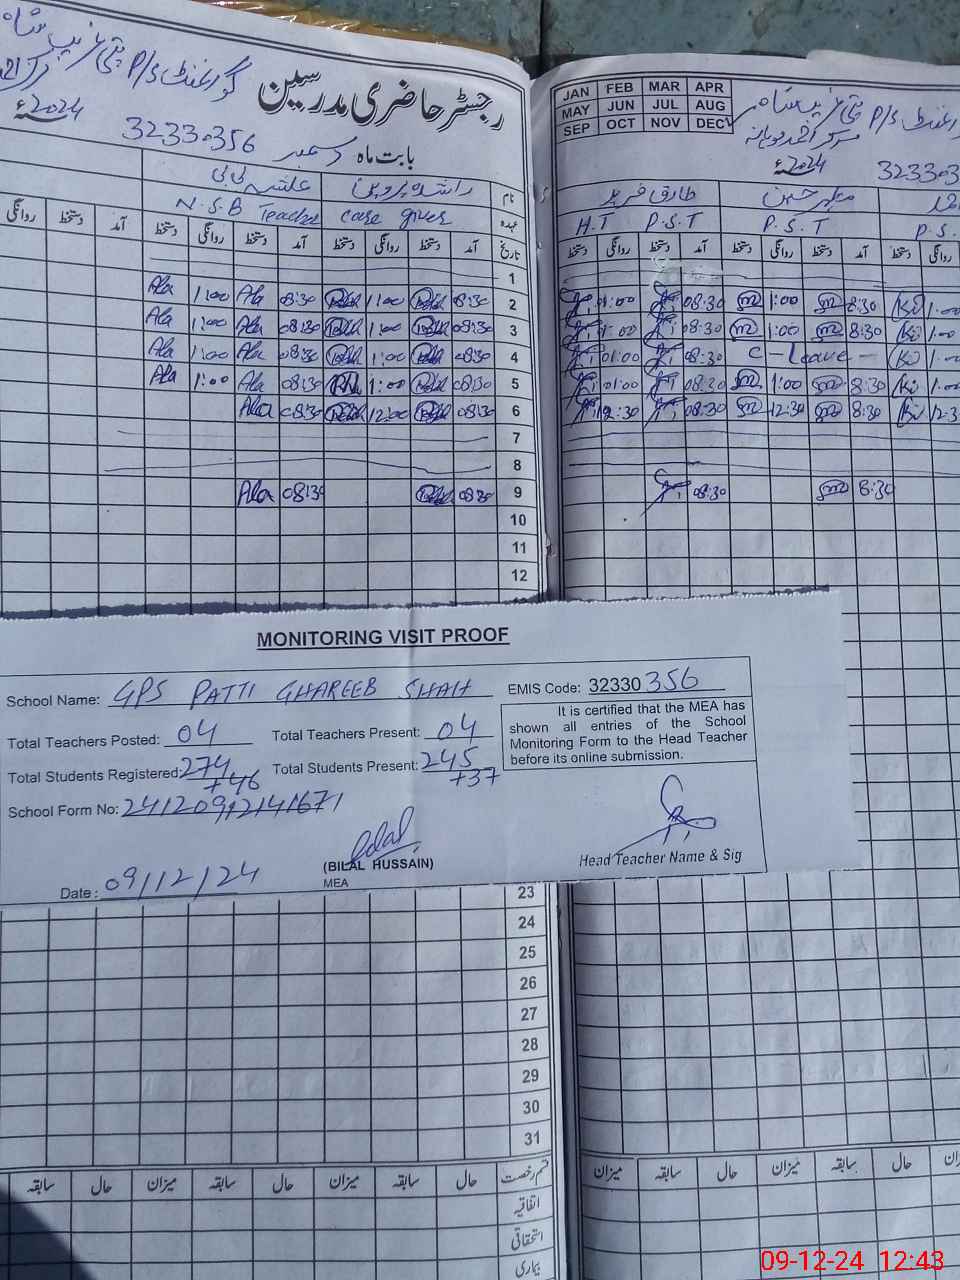 رجسٹر حاضری مدرسین
گورنمنٹ P/S پتی غریب شاہ
2024ء
بابت ماہ دسمبر 32330356
نام راشدہ پروین عائشہ بی بی
عہدہ care giver N.S.B Teacher
تاریخ آمد دستخط روانگی دستخط آمد دستخط روانگی دستخط آمد دستخط روانگی
1
2 08:30 1:00 08:30 Ala 1:00 Ala
3 08:30 1:00 08:30 Ala 1:00 Ala
4 08:30 1:00 08:30 Ala 1:00 Ala
5 08:30 1:00 08:30 Ala 1:00 Ala
6 08:30 12:00 08:30 Ala
7
8
9 08:30 08:30 Ala
10
11
12
23
24
25
26
27
28
29
30
31
قسم رخصت حال سابقہ میزان حال سابقہ میزان حال سابقہ
اتفاقیہ
استحقاقی
بیماری
JAN FEB MAR APR
MAY JUN JUL AUG
SEP OCT NOV DEC
P/S پتی غریب شاہ
مرکز
2024ء
323303
مظہر حسین طارق فرید
P.S. P.S.T P.S.T H.T
روانگی دستخط آمد دستخط روانگی دستخط آمد دستخط روانگی دستخط
1:00 8:30 1:00 08:30 01:00
1:00 8:30 1:00 08:30 1:00
1:00 C-Leave 08:30 01:00
1:00 8:30 1:00 08:30 01:00
12:3 8:30 12:30 08:30 12:30
8:30 08:30
حال سابقہ میزان حال سابقہ میزان
MONITORING VISIT PROOF
School Name: GPS PATTI GHAREEB SHAH EMIS Code: 32330356
Total Teachers Posted: 04 Total Teachers Present: 04
Total Students Registered: 274 +46 Total Students Present: 245 +37
School Form No: 24120912141671
It is certified that the MEA has
shown all entries of the School
Monitoring Form to the Head Teacher
before its online submission.
Bilal
(BILAL HUSSAIN)
MEA
Head Teacher Name & Sig
Date: 09/12/24
09-12-24 12:43